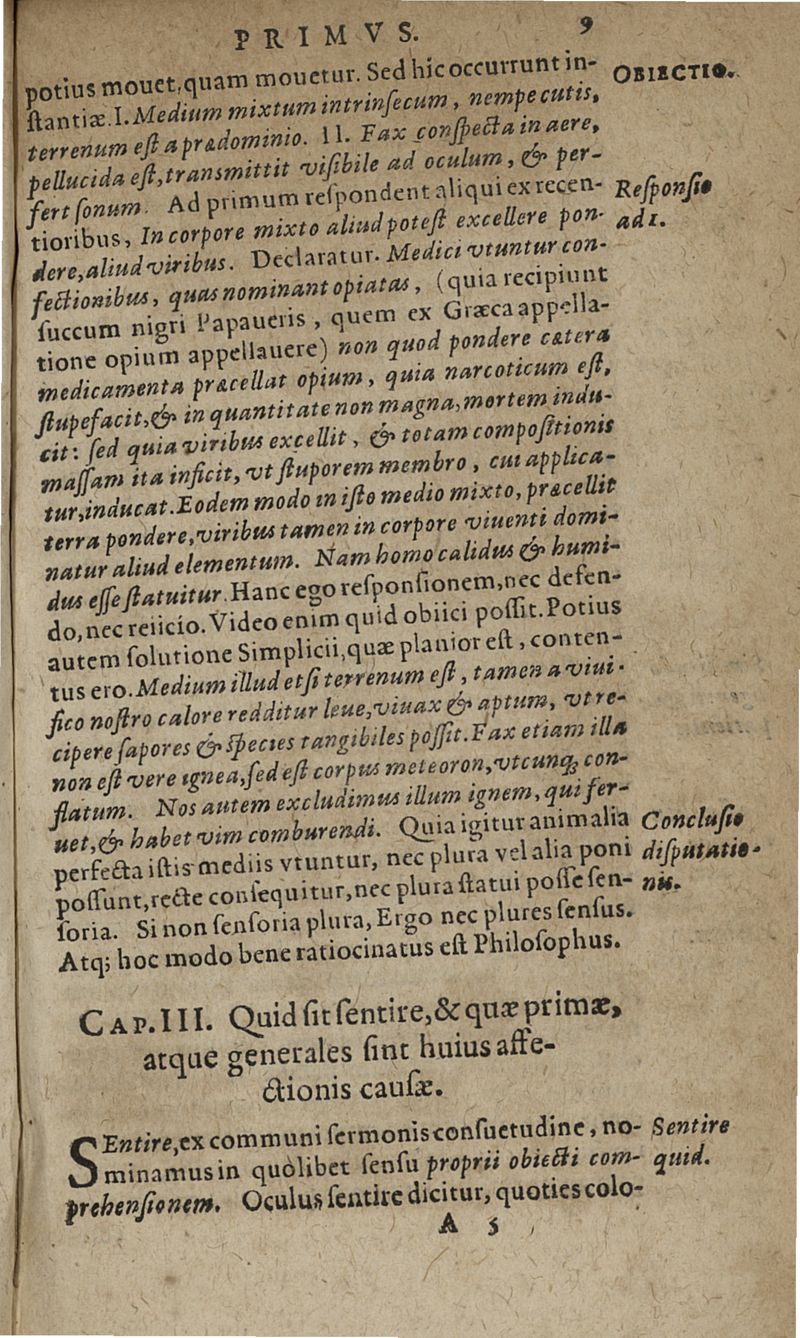 PRIMVS. 9
potius mouet, quam mouetur. Sed hic occurrunt in- OBIECTIO.
ſtantiæ. I. Medium mixtum intrinſecum, nempe cutis,
terrenum eſt a prædominio. II. Fax conſpecta in aere,
pellucida eſt, transmittit viſibile ad oculum, & per-
fert ſonum. Ad primum reſpondent aliqui ex recen- Reſponſio
tioribus, In corpore mixto aliud poteſt excellere pon- ad 1.
dere, aliud viribus. Declaratur. Medici vtuntur con-
fectionibus, quas nominant opiatas, (quia recipiunt
ſuccum nigri Papaueris, quem ex Græca appella-
tione opium appellauere) non quod pondere cætera
medicamenta præcellat opium, quia narcoticum eſt,
ſtupefacit, & in quantitate non magna, mortem indu-
cit: ſed quia viribus excellit, & totam compoſitionis
maſſam ita inficit, vt ſtuporem membro, cui applica-
tur, inducat. Eodem modo in iſto medio mixto, præcellit
terra pondere, viribus tamen in corpore viuenti domi-
natur aliud elementum. Nam homo calidus & humi-
dus eſſe ſtatuitur. Hanc ego reſponſionem, nec defen-
do, nec reiicio. Video enim quid obiici poſſit. Potius
autem ſolutione Simplicii, quæ planior eſt, conten-
tus ero. Medium illud etſi terrenum eſt, tamen a viui-
fico noſtro calore redditur leue, viuax & aptum, vt re-
cipere ſapores & ſpecies tangibiles poſſit. Fax etiam illa
non eſt vere ignea, ſed eſt corpus meteoron, vtcunq; con-
flatum. Nos autem excludimus illum ignem, qui fer-
uet, & habet vim comburendi. Quia igitur animalia Concluſio
perfecta iſtis mediis vtuntur, nec plura vel alia poni diſputatio-
poſſunt, recte conſequitur, nec plura ſtatui poſſe ſen- nis.
ſoria. Si non ſenſoria plura, Ergo nec plures ſenſus.
Atq; hoc modo bene ratiocinatus eſt Philoſophus.
CAP. III. Quid ſit ſentire, & quæ primæ,
atque generales ſint huius affe-
ctionis cauſæ.
SEntire, ex communi ſermonis conſuetudine, no- Sentire
minamus in quòlibet ſenſu proprii obiecti com- quid.
prehenſionem. Oculus ſentire dicitur, quoties colo-
A 5